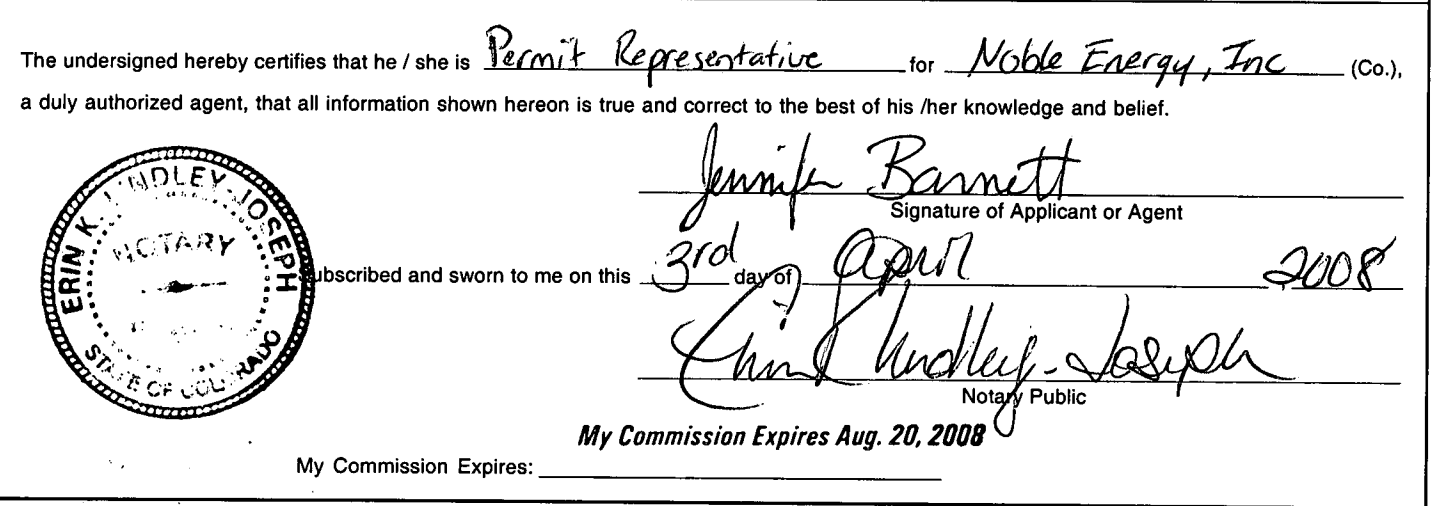 The undersigned hereby certifies that he / she is Permit Representative for Noble Energy, Inc (Co.),
a duly authorized agent, that all information shown hereon is true and correct to the best of his /her knowledge and belief.
Jennifer Barnett
Signature of Applicant or Agent
ERIN K. LINDLEY-JOSEPH
NOTARY
STATE OF COLORADO
Subscribed and sworn to me on this 3rd day of April 2008
Erin K Lindley-Joseph
Notary Public
My Commission Expires Aug. 20, 2008
My Commission Expires: